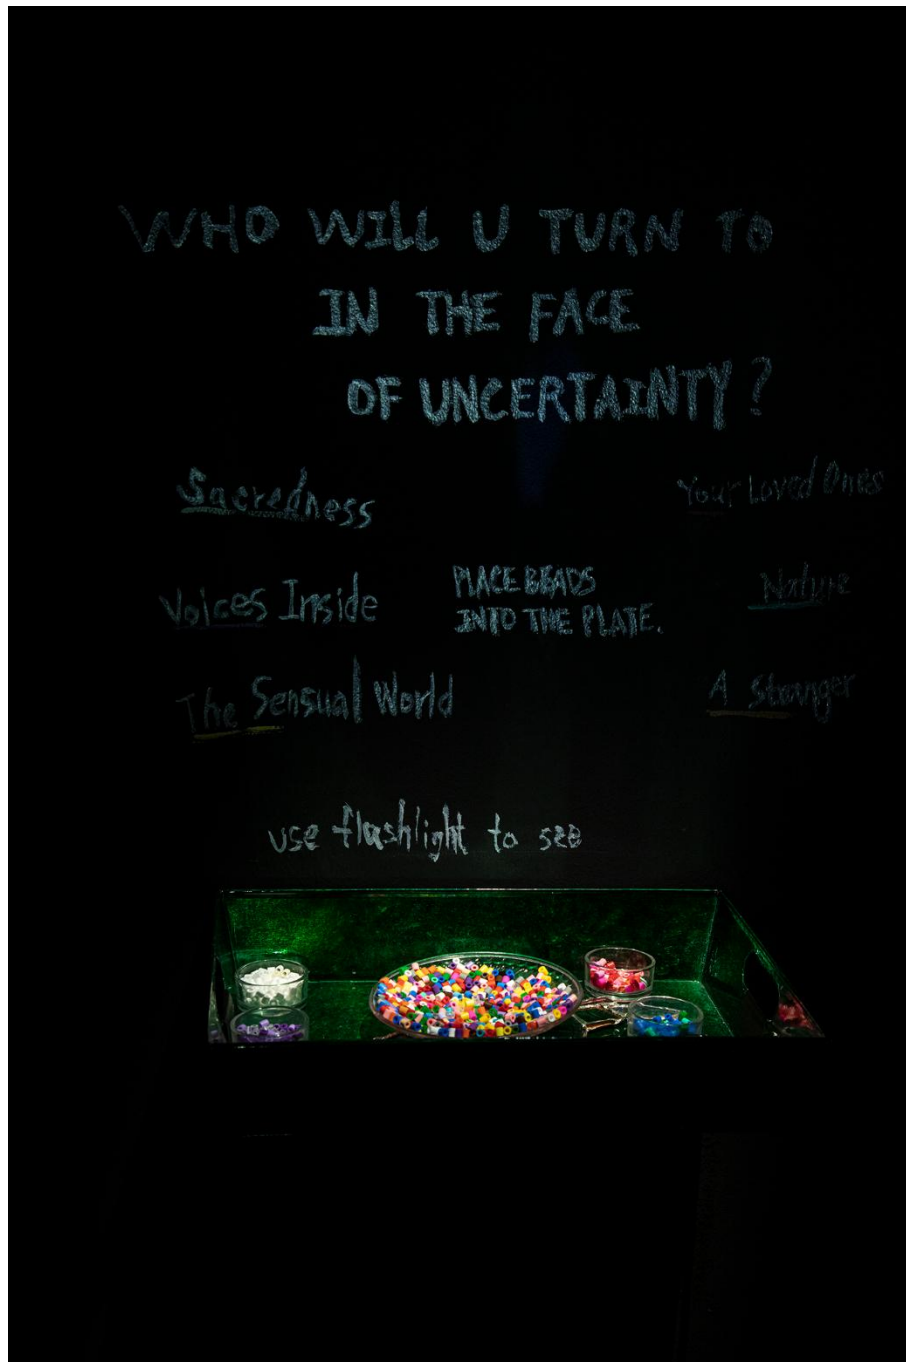 WHO WILL U TURN TO
IN THE FACE
OF UNCERTAINTY?
Sacredness
Your Loved Ones
Voices Inside
PLACE BEADS
INTO THE PLATE.
Nature
The Sensual World
A Stranger
use flashlight to see